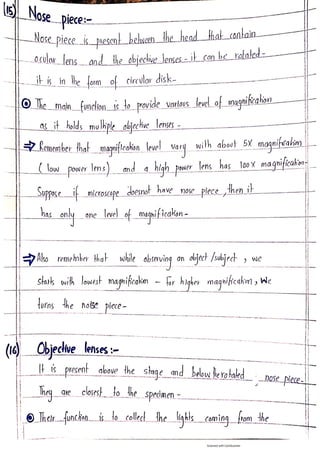 (15) Nose piece:-
Nose piece is present between the head that contain
ocular lens and the objective lenses - it can be rotated-
it is in the form of circular disk-
The main function is to provide various level of magnification
as it holds multiple objective lenses -
⇒ Remember that magnification level vary with about 5X magnification
( low power lens) and a high power lens has 100x magnification-
Suppose if microscope doesnot have nose piece, then it
has only one level of magnification-
⇒ Also remember that while observing an object /subject , we
starts with lowest magnification - for higher magnification, We
turns the nose piece-
(16) Objective lenses:-
It is present above the stage and below the rotated nose piece-
They are closest to the specimen -
Their function is to collect the lights coming from the
Scanned with CamScanner